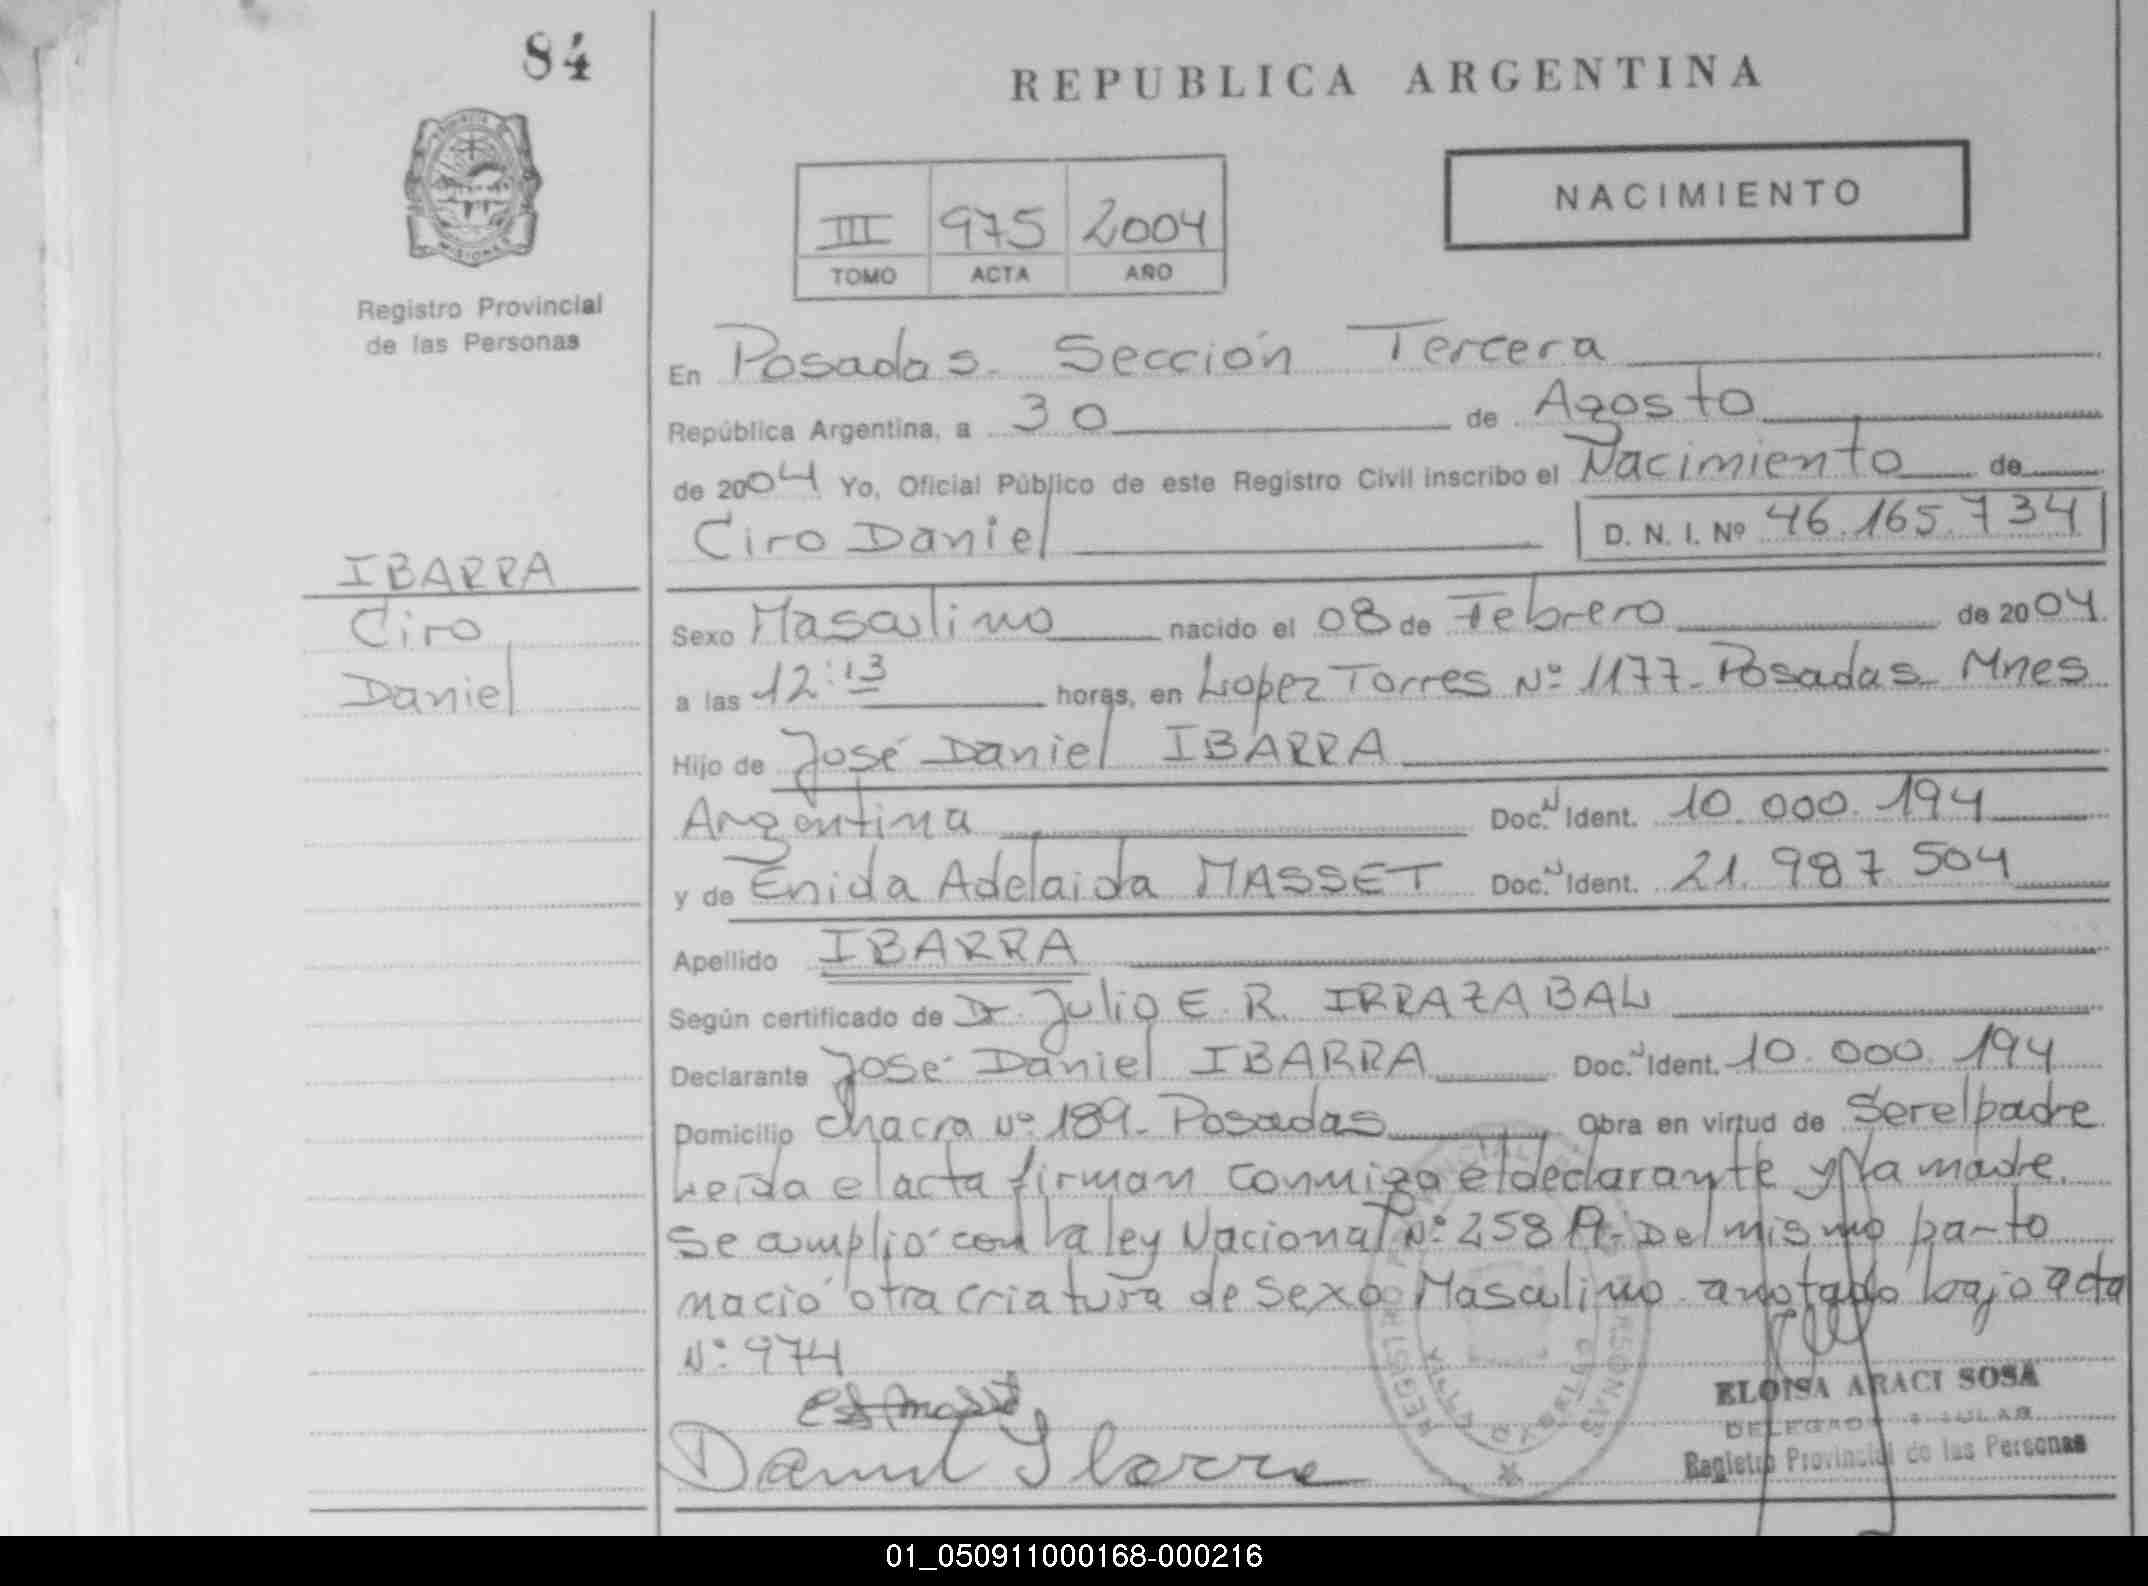 84
REPUBLICA ARGENTINA
NACIMIENTO
III 975 2004
TOMO ACTA AÑO
Registro Provincial
de las Personas
En Posadas. Sección Tercera
República Argentina, a 30 de Agosto
de 2004 Yo, Oficial Público de este Registro Civil inscribo el Nacimiento de
Ciro Daniel D. N. I. Nº 46.165.734
IBARRA
Ciro
Daniel
Sexo Masculino nacido el 08 de Febrero de 2004
a las 12:13 horas, en Lopez Torres Nº 1177- Posadas- Mnes
Hijo de José Daniel IBARRA
Argentina Doc. N Ident. 10.000.194
y de Enida Adelaida MASSET Doc. N Ident. 21.987.504
Apellido IBARRA
Según certificado de Dr. Julio E. R. IRRAZABAL
Declarante José Daniel IBARRA Doc. N Ident. 10.000.194
Domicilio chacra Nº 189- Posadas Obra en virtud de Ser el padre
Leída el acta firman conmigo el declarante y la madre.
Se amplió con la ley Nacional Nº 258 Del mismo parto
nació otra criatura de sexo Masculino anotado bajo acta
Nº 974
Daniel Ibarra
ELOISA ARACI SOSA
DELEGADO TITULAR
Registro Provincial de las Personas
01_050911000168-000216